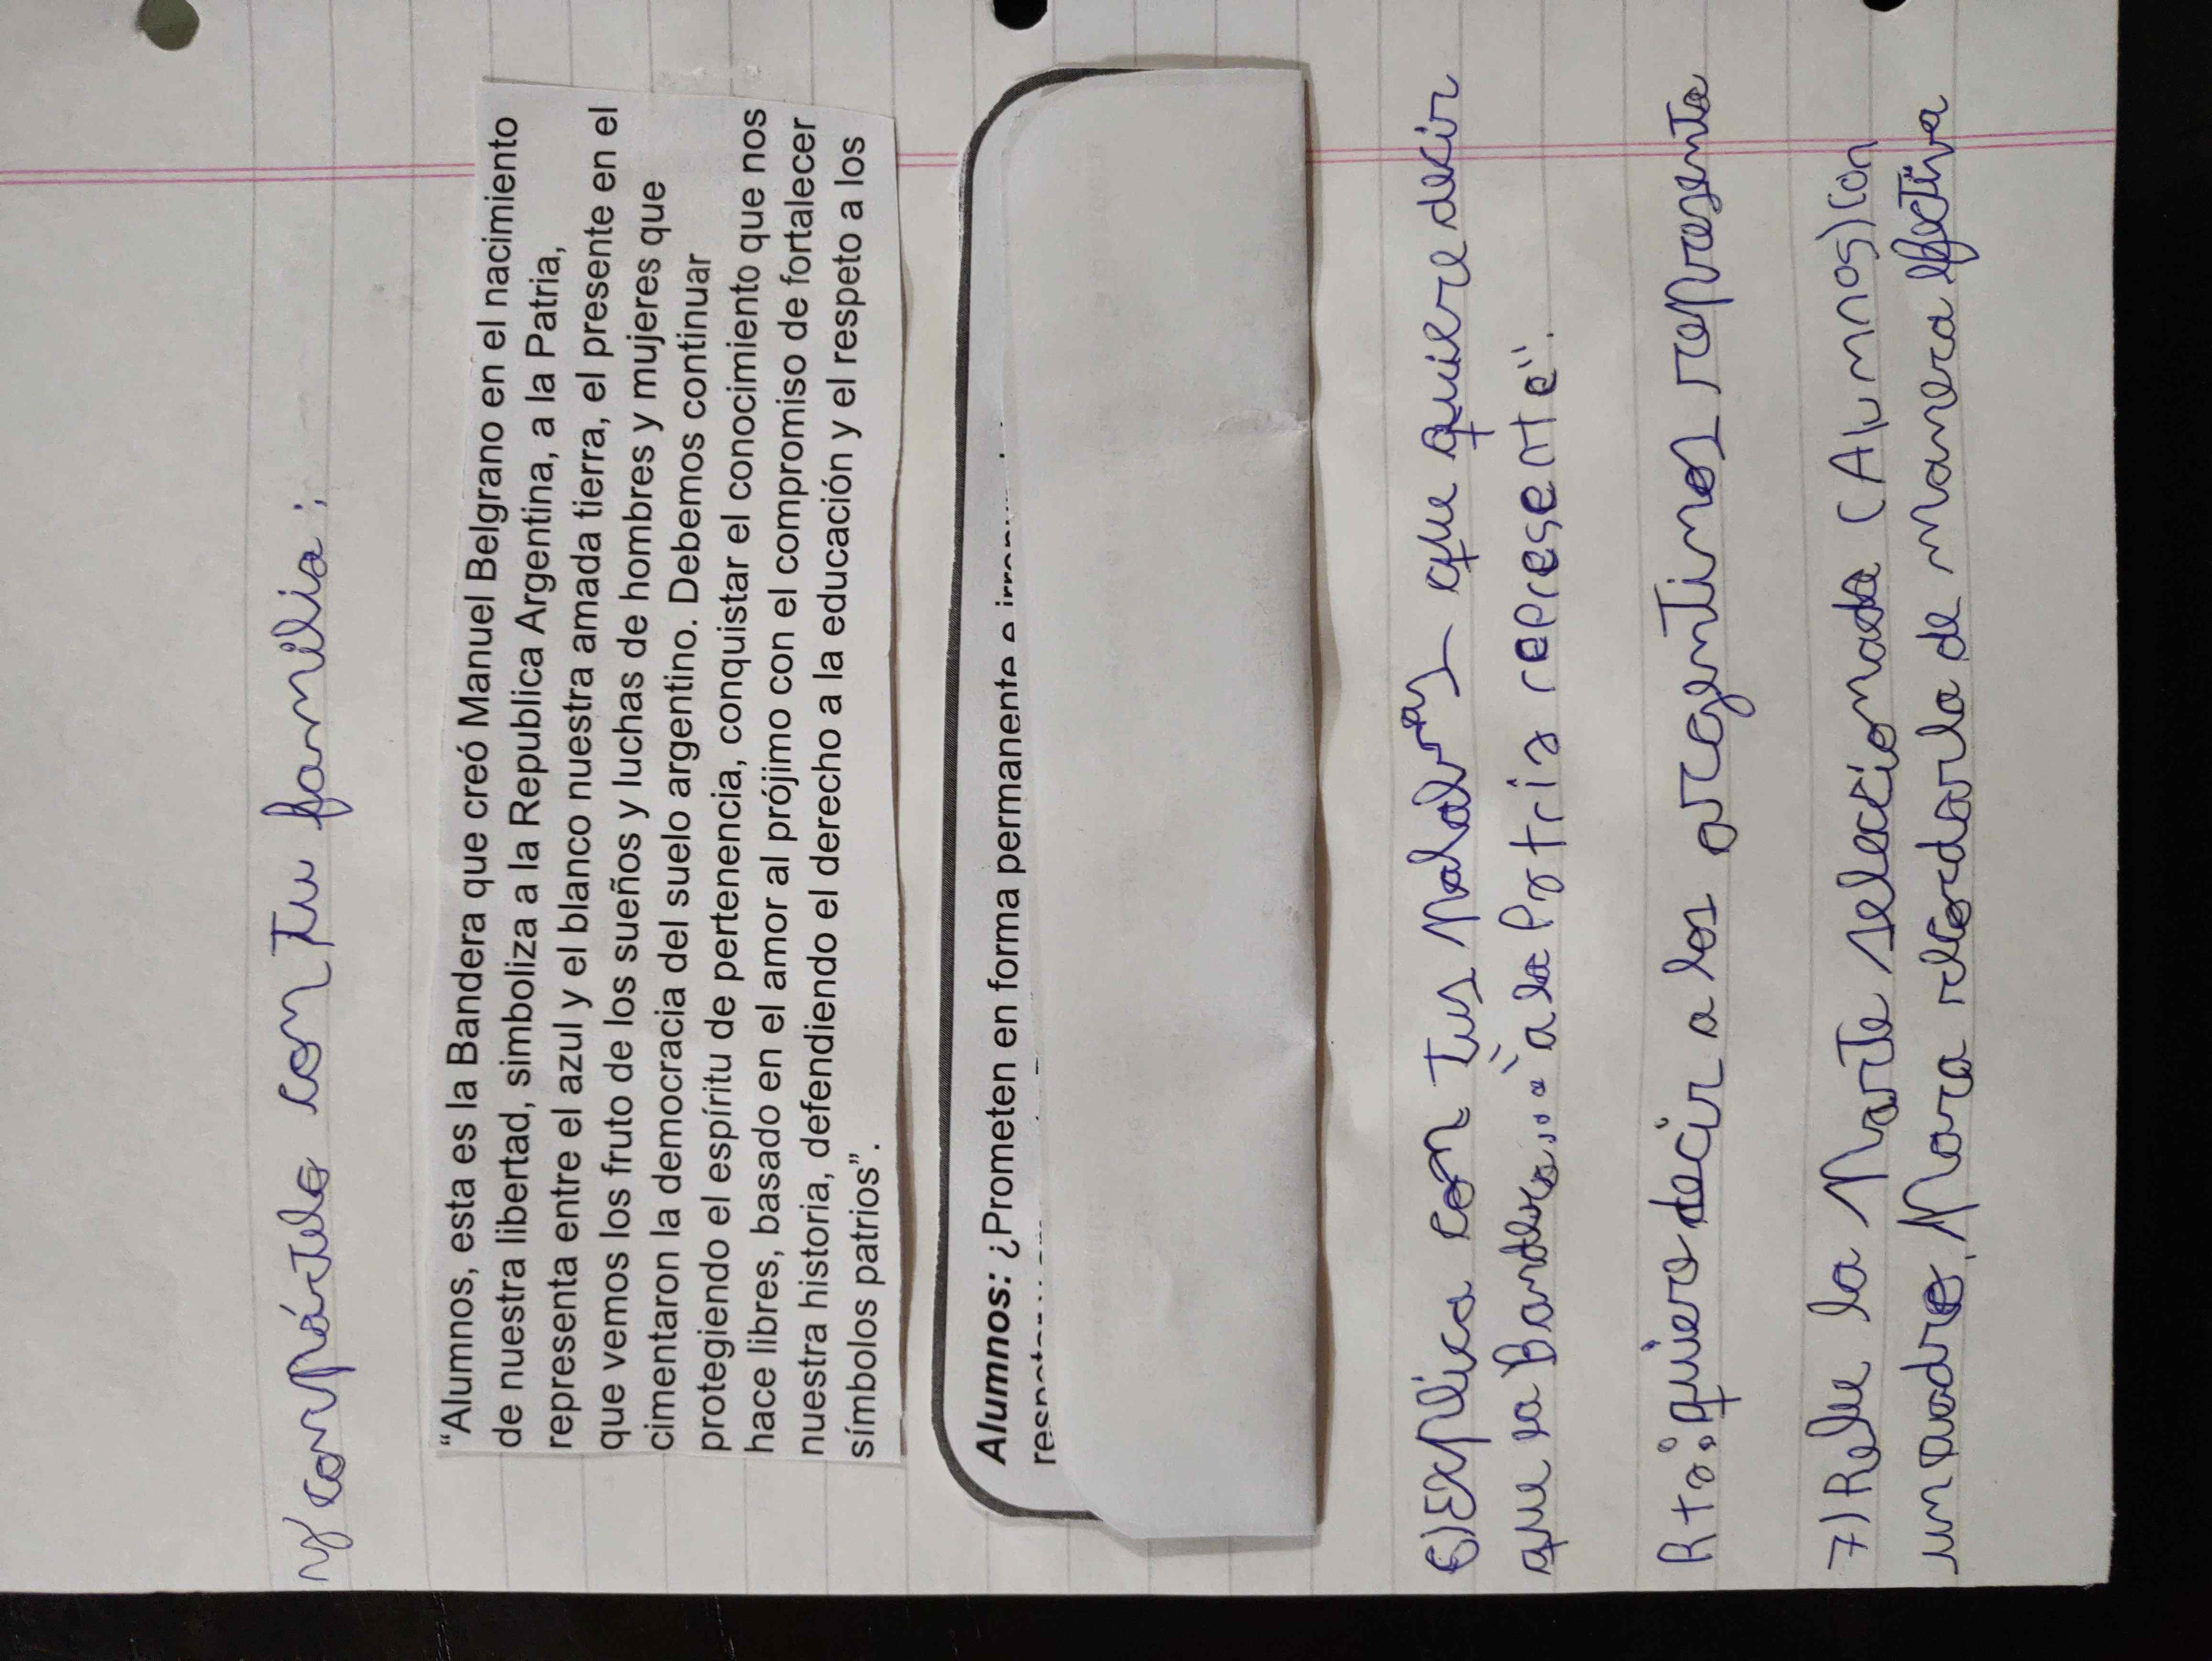 y compártelo con tu familia:
“Alumnos, esta es la Bandera que creó Manuel Belgrano en el nacimiento
de nuestra libertad, simboliza a la Republica Argentina, a la Patria,
representa entre el azul y el blanco nuestra amada tierra, el presente en el
que vemos los fruto de los sueños y luchas de hombres y mujeres que
cimentaron la democracia del suelo argentino. Debemos continuar
protegiendo el espíritu de pertenencia, conquistar el conocimiento que nos
hace libres, basado en el amor al prójimo con el compromiso de fortalecer
nuestra historia, defendiendo el derecho a la educación y el respeto a los
símbolos patrios”.
Alumnos: ¿Prometen en forma permanente e
6) Explica con tus palabras que quiere decir
que la Bandera... "a la Patria represente".
Rta: quiero decir a los argentinos representa
7) Relee la parte seleccionada (Alumnos) con
un cuadro, para recordarla de manera efectiva